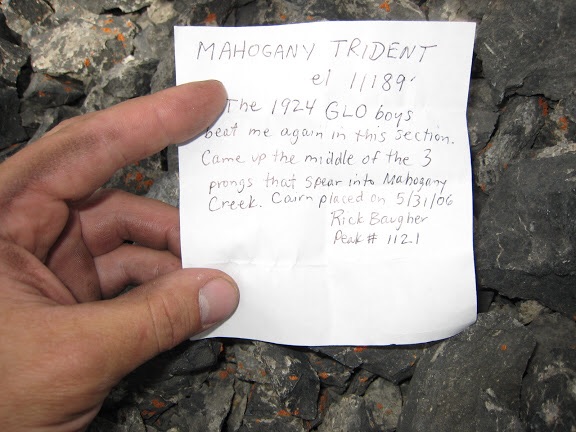 MAHOGANY TRIDENT
el 11189'
The 1924 GLO boys
beat me again in this section.
Came up the middle of the 3
prongs that spear into Mahogany
Creek. Cairn placed on 5/31/06
Rick Baugher
Peak # 1121